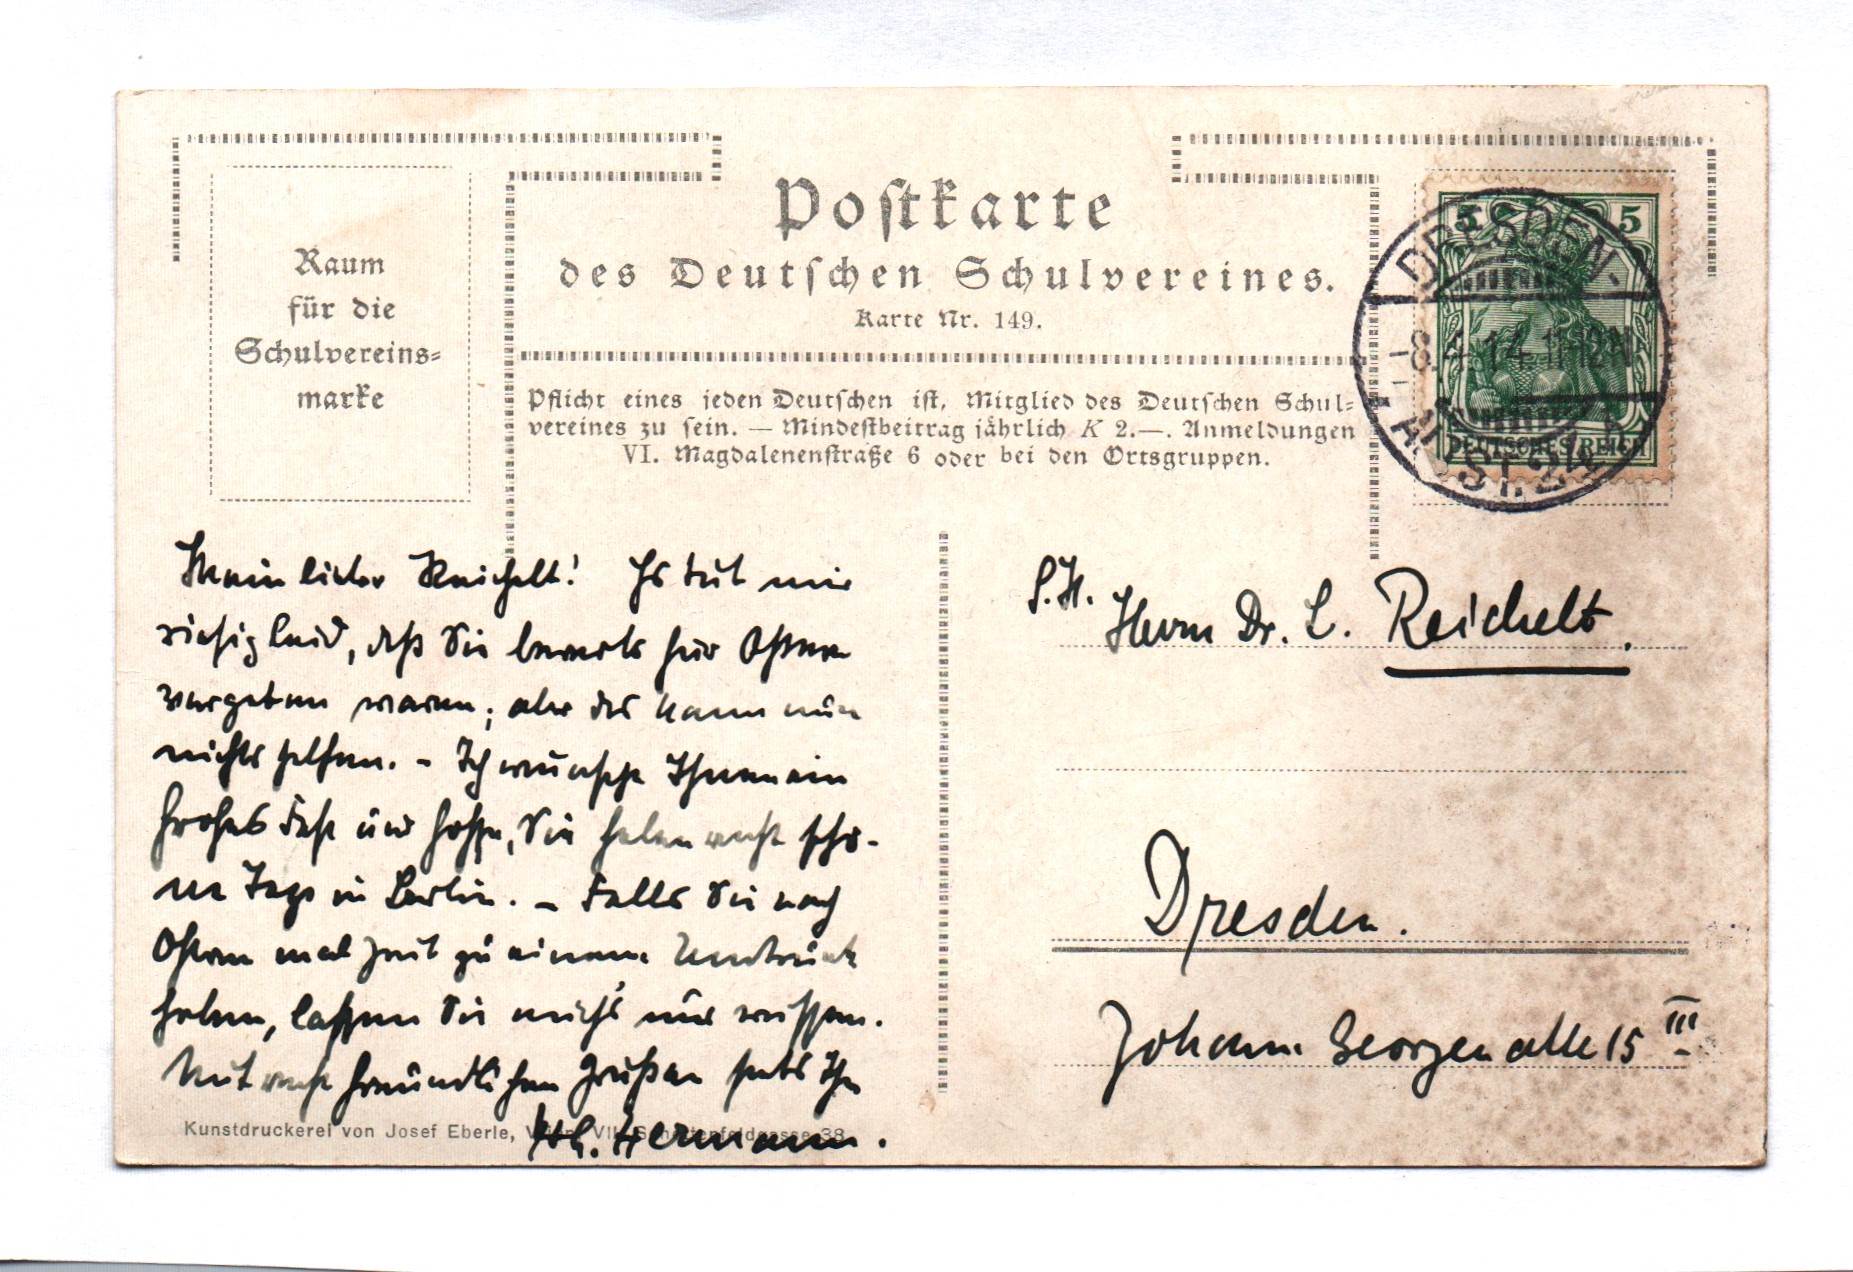 Raum
für die
Schulvereins=
marke
Postkarte
des Deutschen Schulvereines.
Karte Nr. 149.
Pflicht eines jeden Deutschen ist, Mitglied des Deutschen Schul=
vereines zu sein. — Mindestbeitrag jährlich K 2.—. Anmeldungen
VI. Magdalenenstraße 6 oder bei den Ortsgruppen.
5 5
DEUTSCHES REICH
DRESDEN-
-8.4.14.11-12N
ALTST. 24
Mein lieber Reichelt! Es tut mir
riesig leid, daß Sie bereits für Ostern
vergeben waren; aber das kann nun
nichts helfen. - Ich wünsche Ihnen ein
frohes Fest und hoffe, Sie haben recht schö-
ne Tage in Berlin. - Falls Sie nach
Ostern mal Zeit zu einem Umtrunk
haben, lassen Sie mich's nur wissen.
Mit recht freundlichen Grüßen stets Ihr
Hermann.
S. H. Herrn Dr. L. Reichelt.
Dresden.
Johann Georgenallee 15 III
Kunstdruckerei von Josef Eberle, Wien, VII. Schottenfeldgasse 38